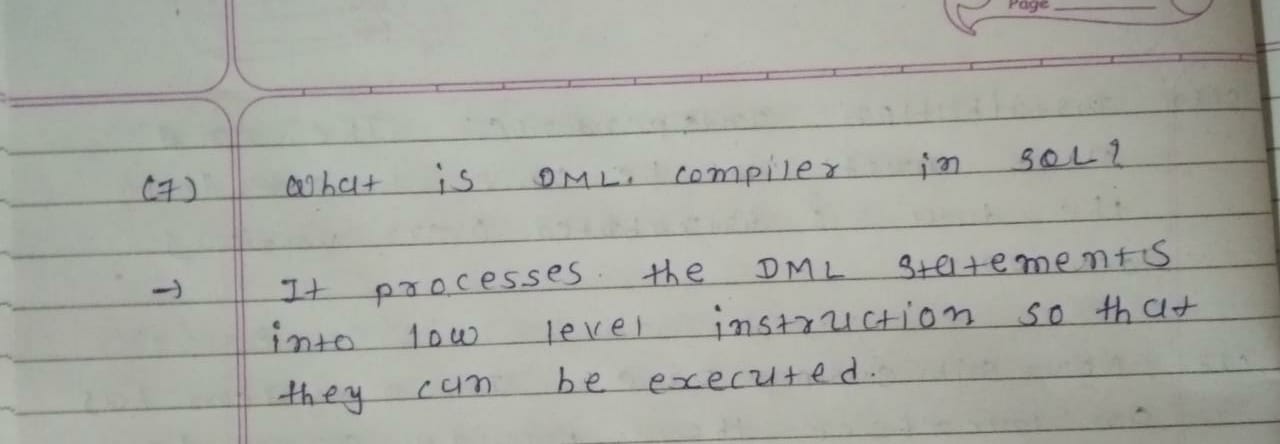 Page
(7) What is DML. compiler in SQL?
→ It processes. the DML statements
into low level instruction so that
they can be executed.